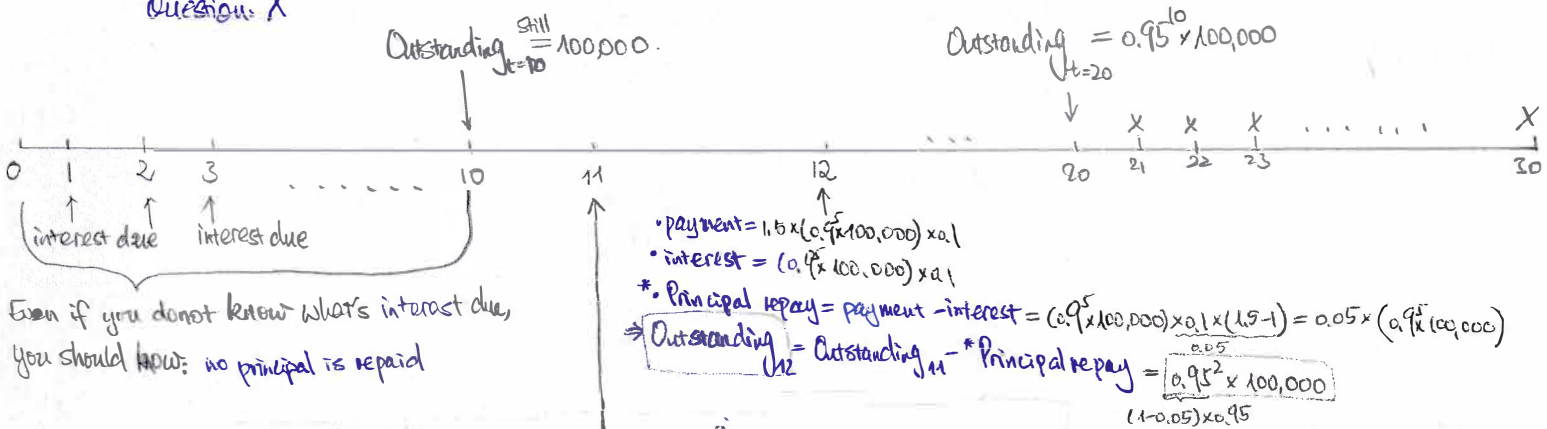 Question: X
Outstanding t=10 still = 100,000.
Outstanding t=20 = 0.95^10 × 100,000
X X X ...... X
0 1 2 3 ...... 10 11 12 ... 20 21 22 23 30
interest due interest due
Even if you donot know what's interest due,
you should know: no principal is repaid
• payment = 1.5×(0.95×100,000)×0.1
• interest = (0.95×100,000)×0.1
*• Principal repay = payment - interest = (0.95×100,000)×0.1×(1.5-1) = 0.05×(0.95×100,000)
0.05
⇒ Outstanding 12 = Outstanding 11 - *Principal repay = 0.95² × 100,000
(1-0.05)×0.95